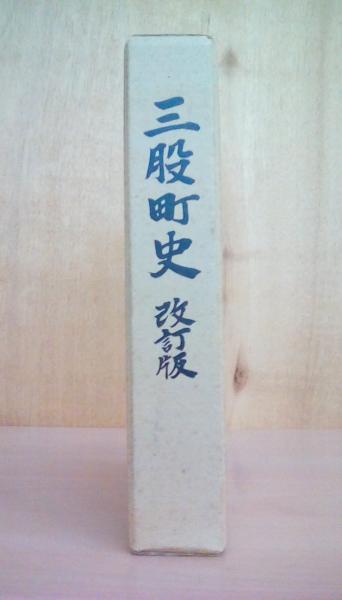 三股町史 改訂版